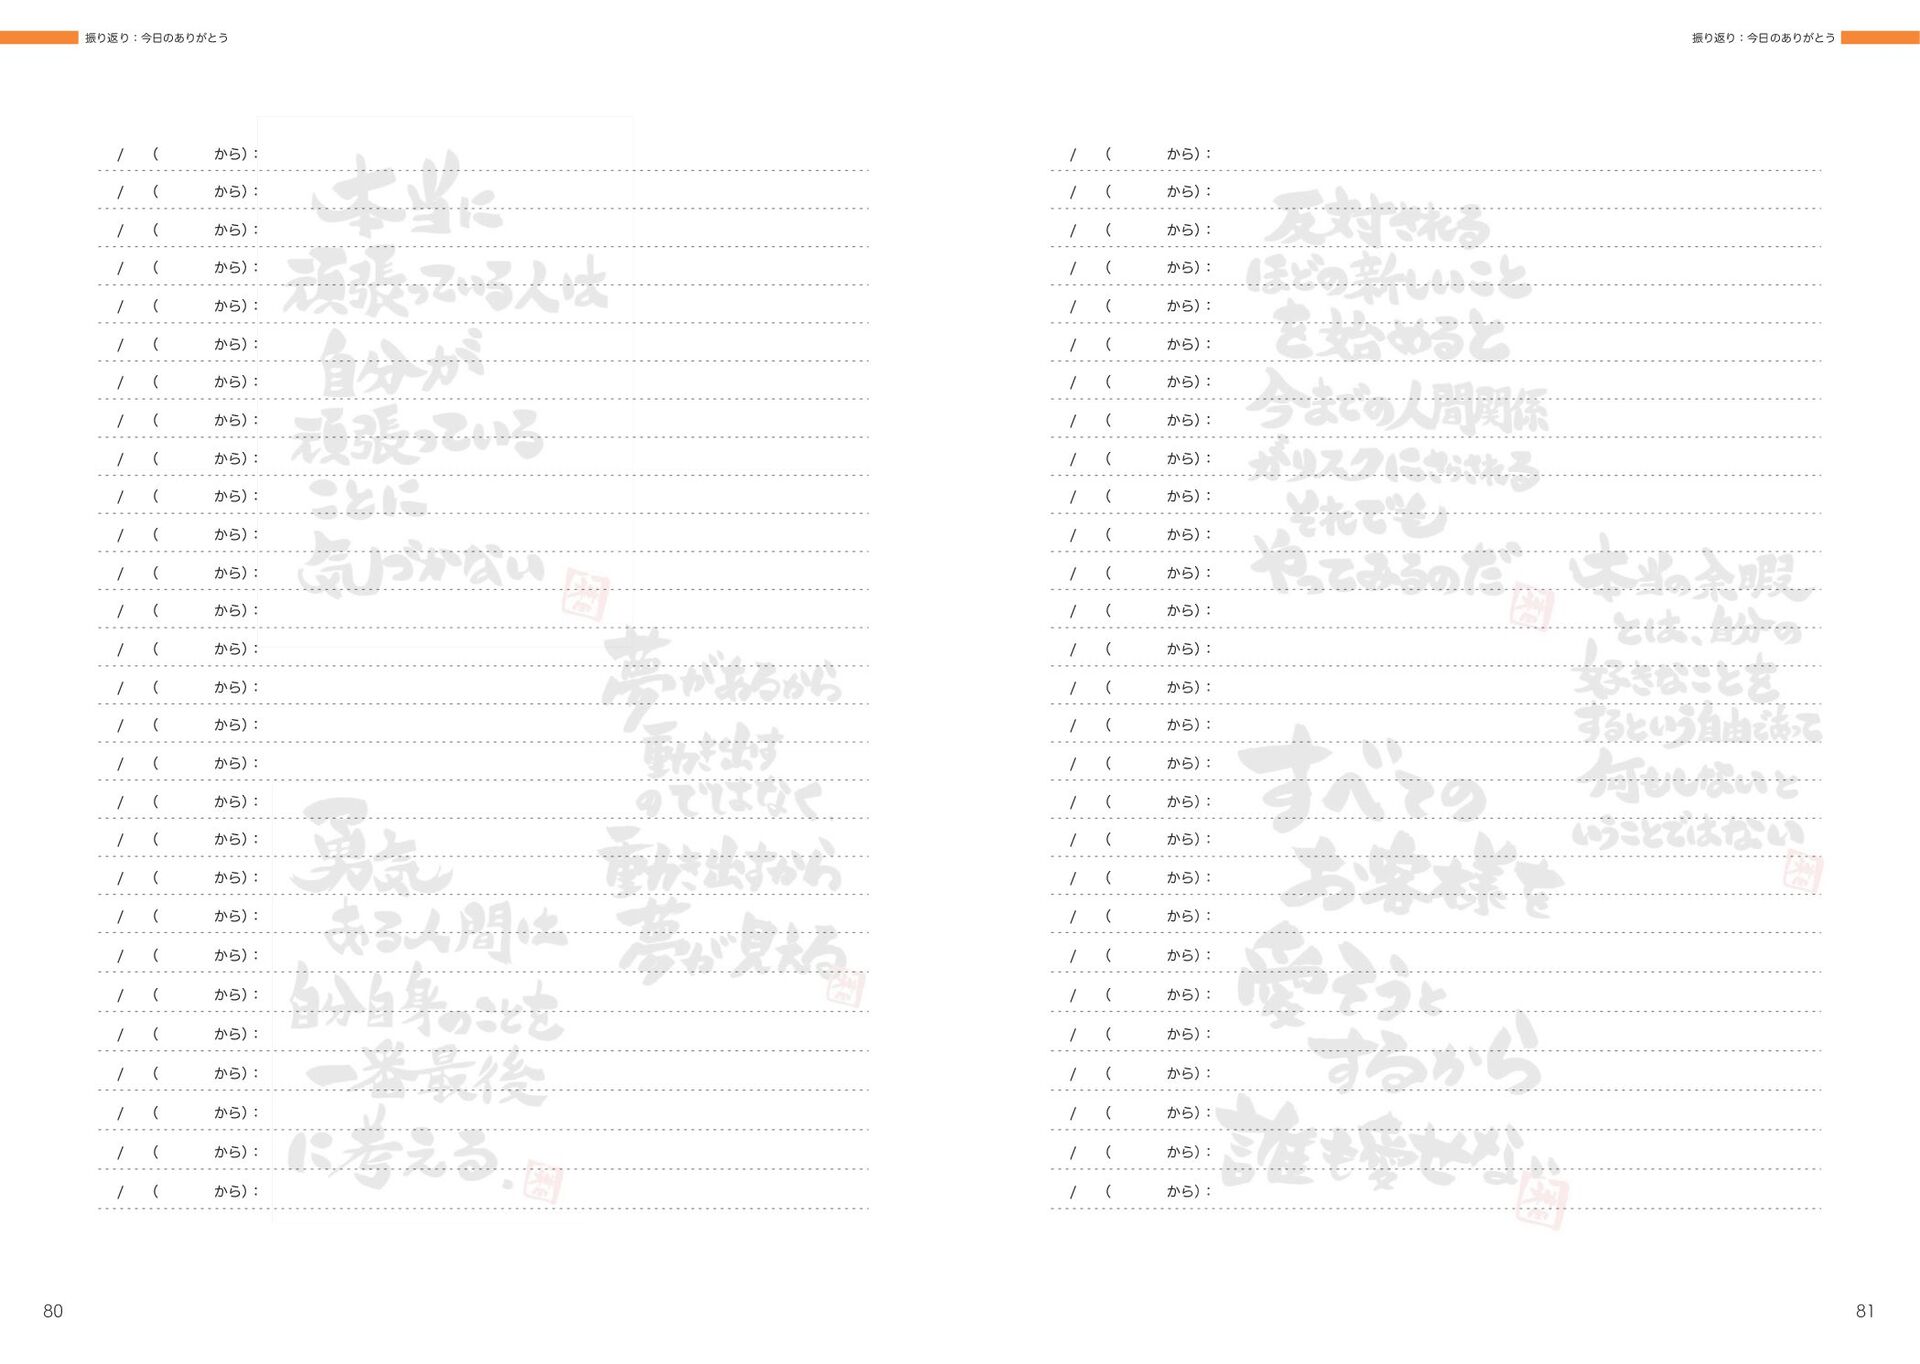 振り返り：今日のありがとう
/ （ から）：
/ （ から）：
/ （ から）：
/ （ から）：
/ （ から）：
/ （ から）：
/ （ から）：
/ （ から）：
/ （ から）：
/ （ から）：
/ （ から）：
/ （ から）：
/ （ から）：
/ （ から）：
/ （ から）：
/ （ から）：
/ （ から）：
/ （ から）：
/ （ から）：
/ （ から）：
/ （ から）：
/ （ から）：
/ （ から）：
/ （ から）：
/ （ から）：
/ （ から）：
/ （ から）：
/ （ から）：
本当に
頑張っている人は
自分が
頑張っている
ことに
気づかない
夢があるから
動き出す
のではなく
動き出すから
夢が見える
勇気
ある人間は
自分自身のことを
一番最後
に考える.
80
振り返り：今日のありがとう
/ （ から）：
/ （ から）：
/ （ から）：
/ （ から）：
/ （ から）：
/ （ から）：
/ （ から）：
/ （ から）：
/ （ から）：
/ （ から）：
/ （ から）：
/ （ から）：
/ （ から）：
/ （ から）：
/ （ から）：
/ （ から）：
/ （ から）：
/ （ から）：
/ （ から）：
/ （ から）：
/ （ から）：
/ （ から）：
/ （ から）：
/ （ から）：
/ （ から）：
/ （ から）：
/ （ から）：
/ （ から）：
反対される
ほどの新しいこと
を始めると
今までの人間関係
がリスクにさらされる
それでも
やってみるのだ
本当の余暇
とは、自分の
好きなことを
するという自由であって
何もしないと
いうことではない
すべての
お客様を
愛そうと
するから
誰も愛せない
81